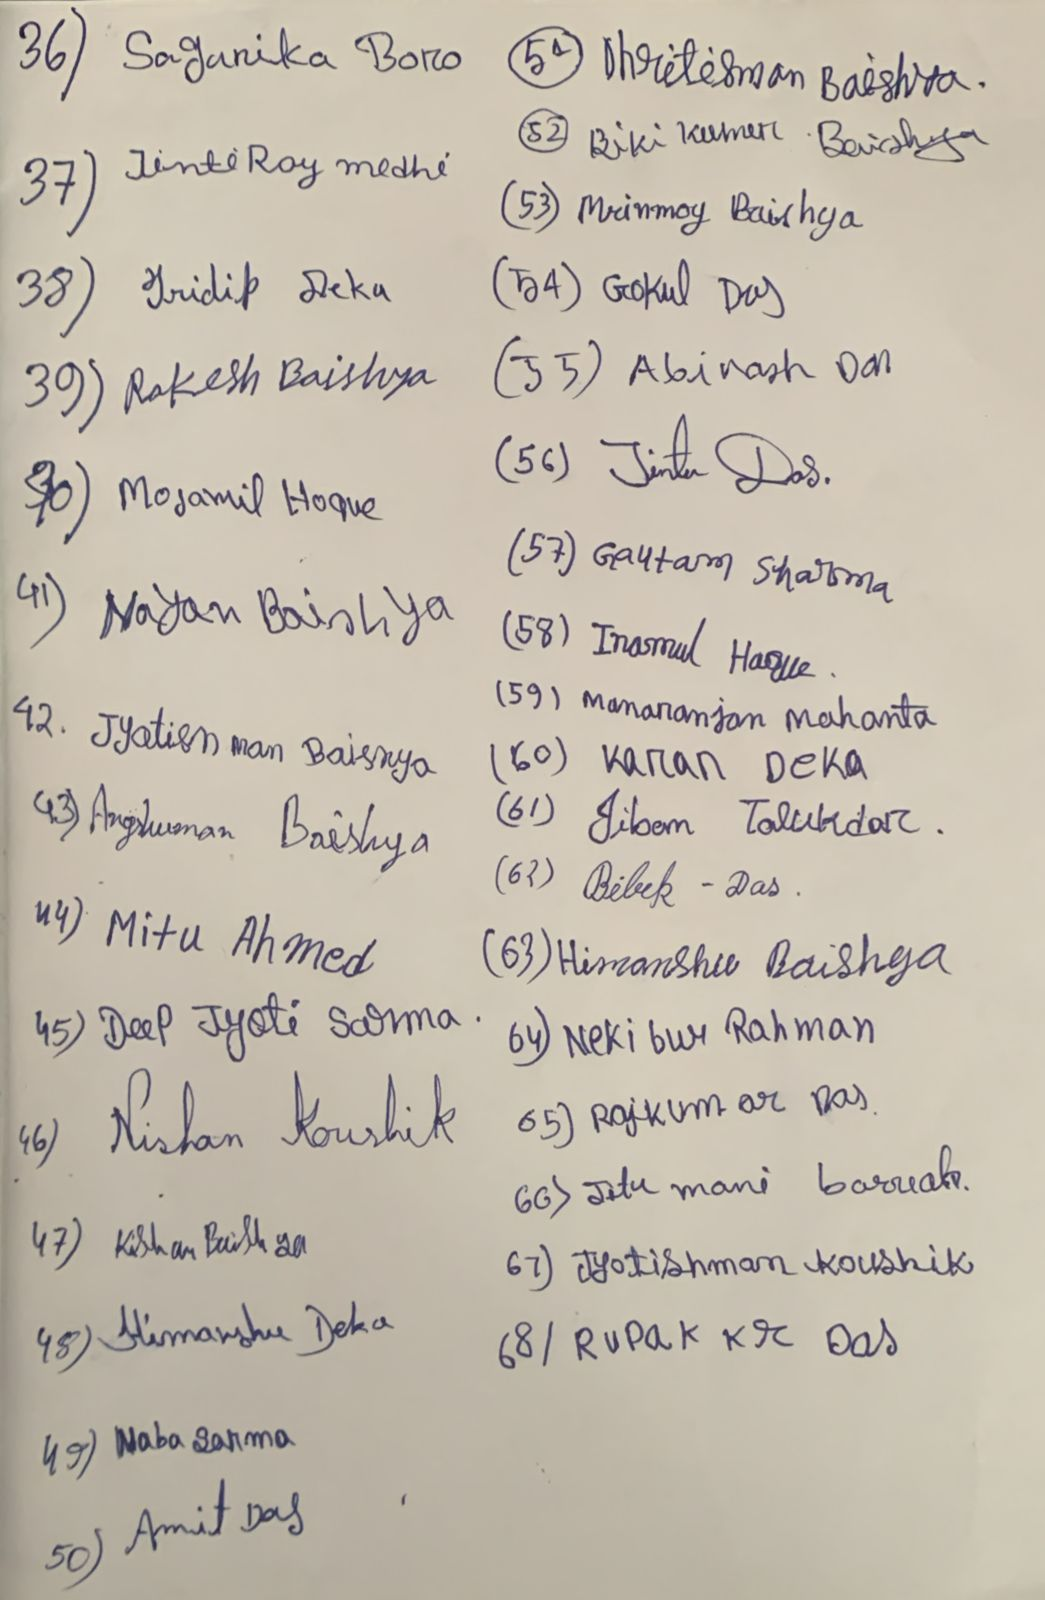 36) Saganika Boro
37) Jinti Roy medhi
38) Tridip Deka
39) Rakesh Baishya
40) Mojamil Hoque
41) Nayan Baishya
42. Jyatishman Baishya
43) Angshuman Baishya
44) Mitu Ahmed
45) Deep Jyoti Sarma.
46) Nishan Koushik
47) Kishan Baishya
48) Himanshu Deka
49) Naba Sarma
50) Amit Das
51 Dhritisman Baishya.
52 Biki Kumar Baishya
(53) Mrinmoy Baishya
(54) Gokul Das
(55) Abinash Das
(56) Jintu Das.
(57) Gautam Sharma
(58) Inamul Haque.
(59) Manaranjan Mahanta
(60) Karan Deka
(61) Jibon Talukdar.
(62) Bibek - Das.
(63) Himanshu Baishya
64) Nekibur Rahman
65) Rajkumar Das.
66) Jitu mani baruah.
67) Jyotishman Koushik
68/ Rupak Kr Das